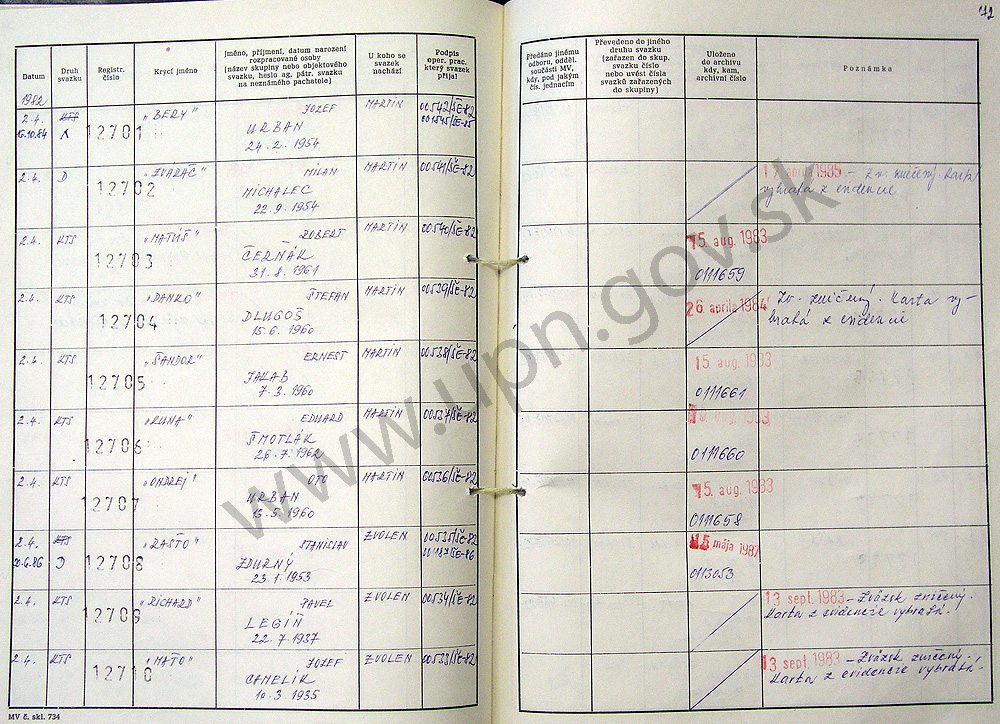 72
Datum
Druh svazku
Registr. číslo
Krycí jméno
Jméno, příjmení, datum narození
rozpracované osoby
(název skupiny nebo objektového
svazku, heslo ag. pátr. svazku
na neznámého pachatele)
U koho se
svazek
nachází
Podpis
oper. prac.
který svazek
přijal
Předáno jinému
odboru, odděl.
součásti MV,
kdy, pod jakým
čís. jednacím
Převedeno do jiného
druhu svazku
(zařazen do skup.
svazku číslo
nebo uvést čísla
svazků zařazených
do skupiny)
Uloženo
do archivu
kdy, kam,
archivní číslo
Poznámka
1982
2.4. KTS 12701 „BERY" JOZEF MARTIN 00542/ŠE-82
15.10.84 A URBAN 001545/ŠE-85
24.2.1954
2.4. D 12702 „ZVÁRAČ" MILAN MARTIN 00541/ŠE-82 apríla 1985 – Zv. zničený. Karta
MICHALEC vybratá z evidencie
22.9.1954
2.4. KTS 12703 „MATÚŠ" ROBERT MARTIN 00540/ŠE-82 15. aug. 1983
ČERŇÁK 0111659
31.8.1961
2.4. KTS 12704 „DANKO" ŠTEFAN MARTIN 00539/ŠE-82 26. apríla 1984 Zv. zničený. Karta vy-
DLUGOŠ bratá z evidencie
15.6.1960
2.4. KTS 12705 „ŠANDOR" ERNEST MARTIN 00538/ŠE-82 15. aug. 1983
JAKAB 0111661
7.3.1960
2.4. KTS 12706 „RUNA" EDUARD MARTIN 00537/ŠE-82
ŠMOTLÁK 0111660
26.7.1962
2.4. KTS 12707 „ONDREJ" OTO MARTIN 00536/ŠE-82 15. aug. 1983
URBAN 0111658
13.5.1960
2.4. KTS 12708 „RASŤO" STANISLAV ZVOLEN 00535/ŠE-82 mája 1987
20.6.86 D ZDURNÝ 0113053
23.1.1953
2.4. KTS 12709 „RICHARD" PAVEL ZVOLEN 00534/ŠE-82 13 sept. 1983 – Zväzok zničený.
LEGÍŇ Karta z evidencie vybratá.
22.7.1937
2.4. KTS 12710 „MAŤO" JOZEF ZVOLEN 00533/ŠE-82 13 sept. 1983 – Zväzok zničený.
CAMELIK Karta z evidencie vybratá.
10.3.1935
MV č. skl. 734
www.upn.gov.sk